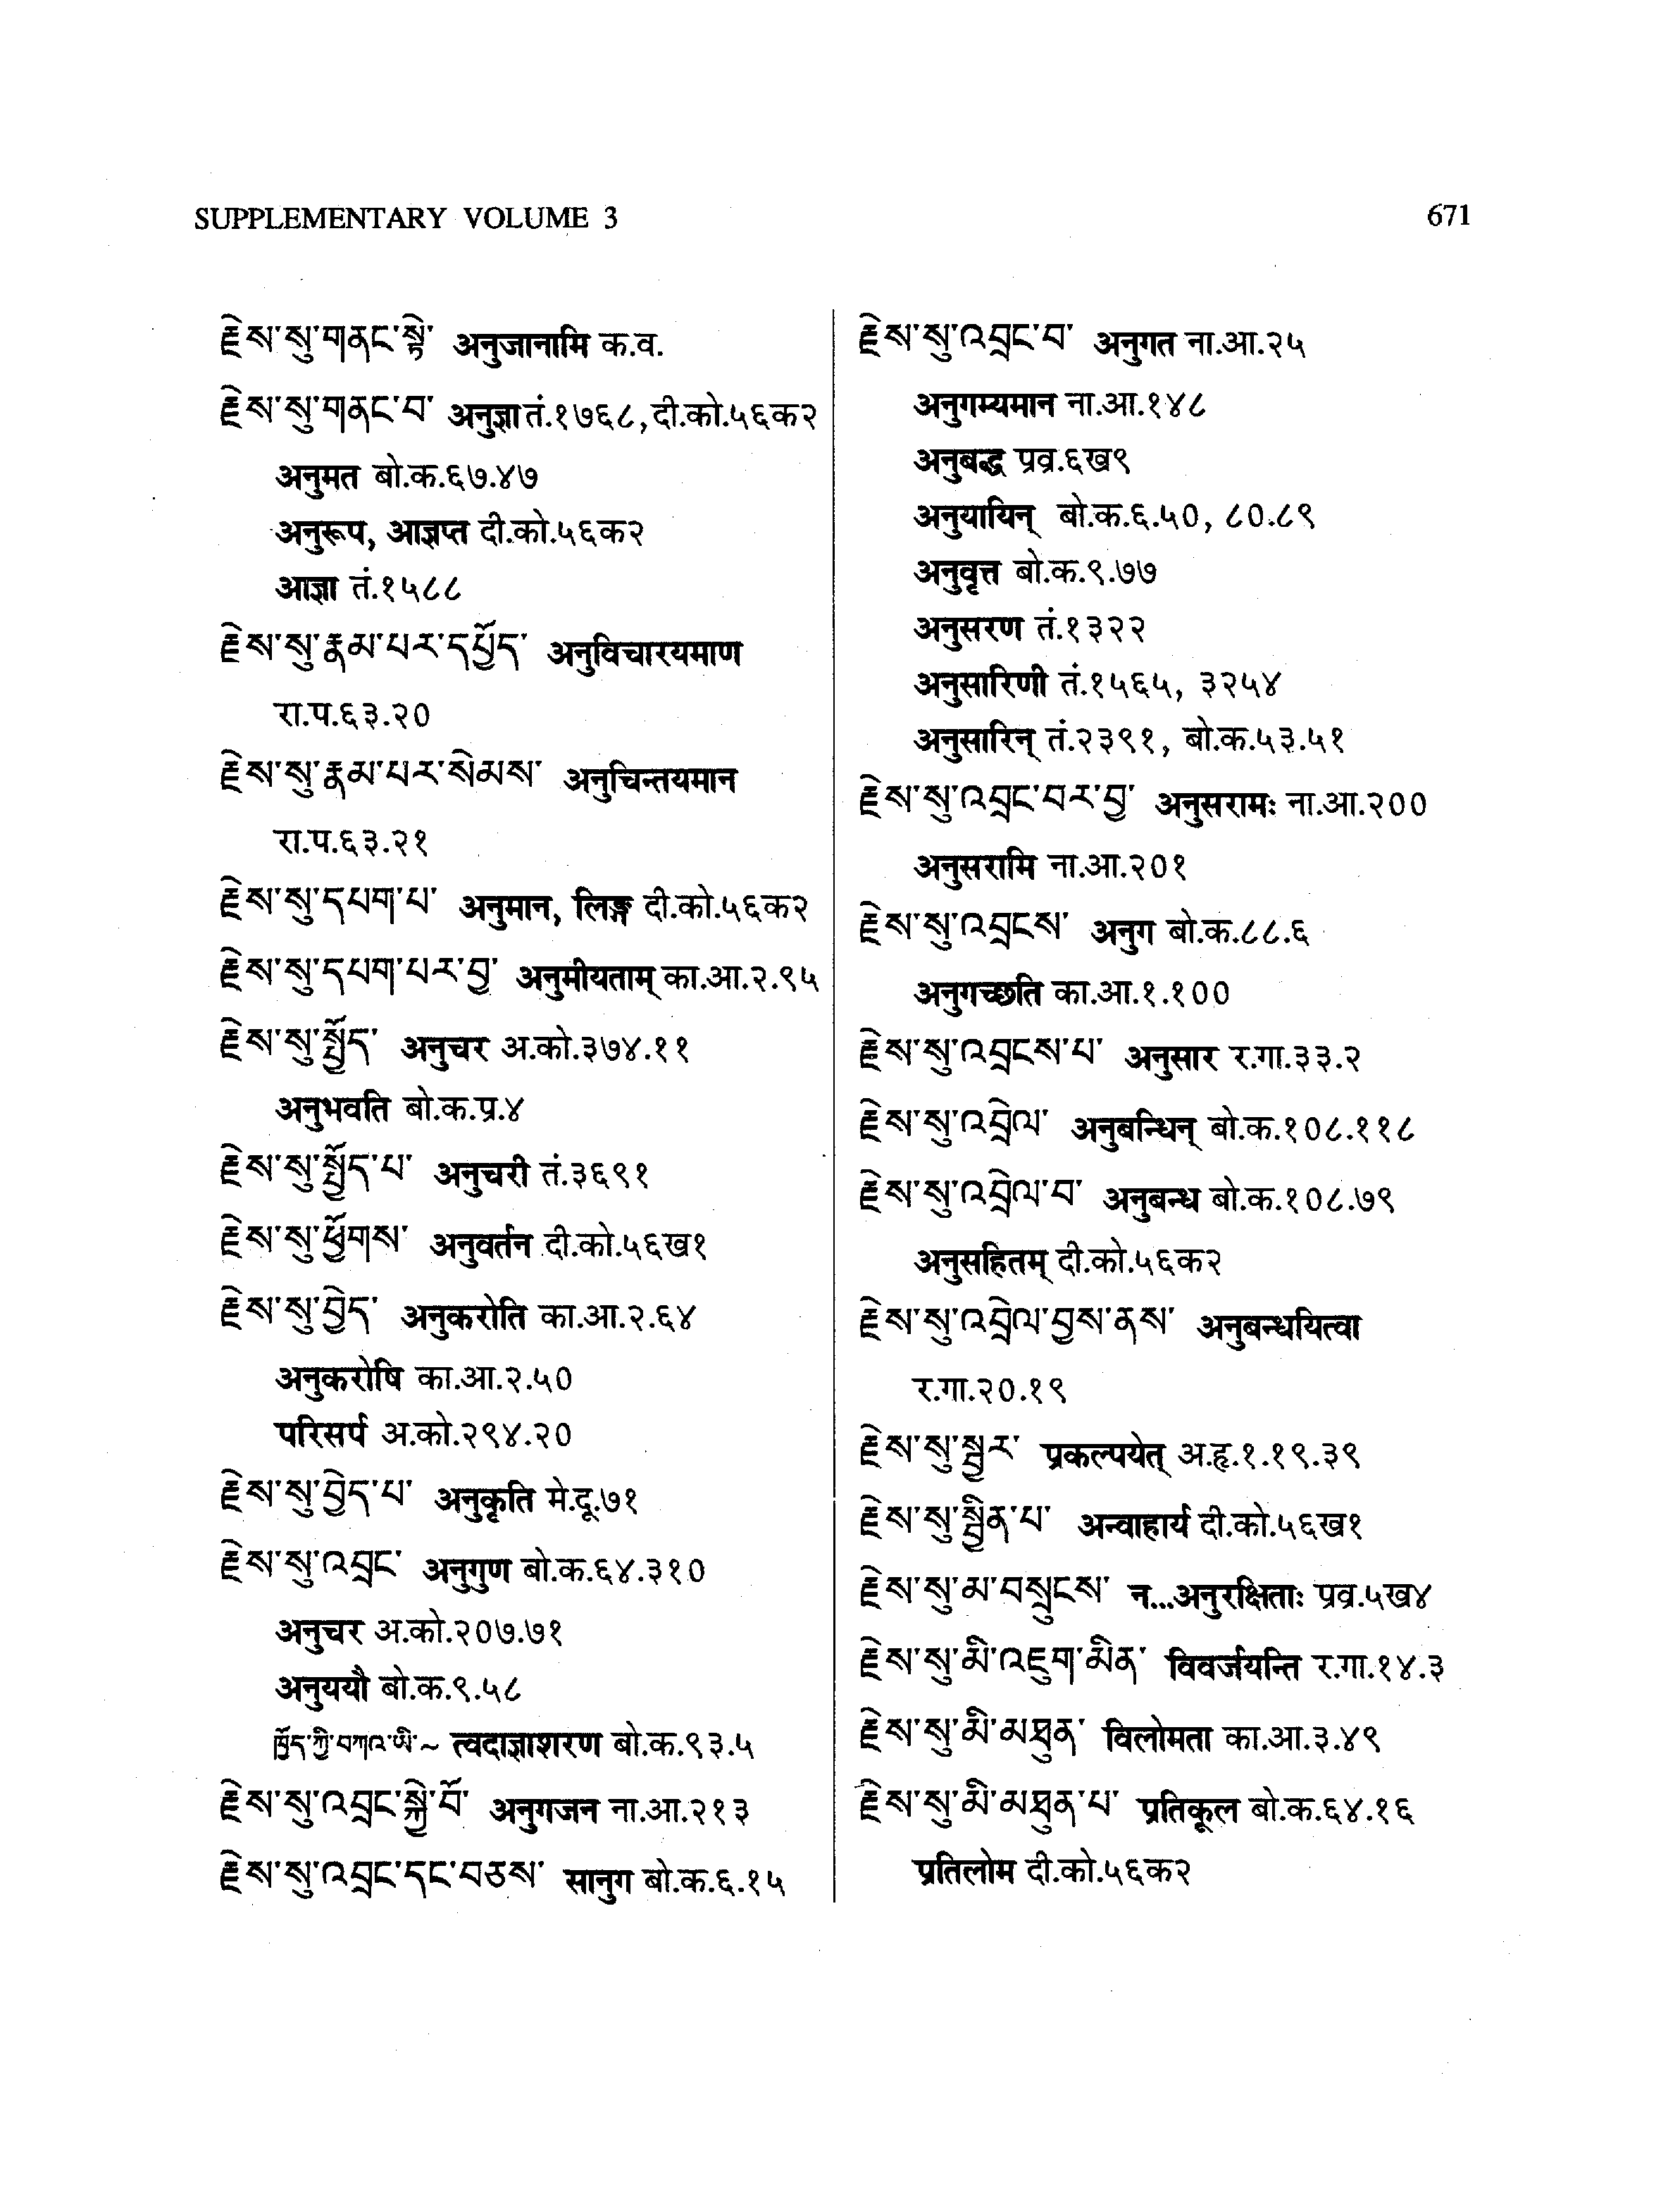 SUPPLEMENTARY VOLUME 3
671
རྗེས་སུ་གནང་སྟེ་ अनुजानामि क.व.
རྗེས་སུ་གནང་བ་ अनुज्ञा तं.१७६८, दी.को.५६क२
अनुमत बो.क.६७.४७
अनुरूप, आज्ञप्त दी.को.५६क२
आज्ञा तं.१५८८
རྗེས་སུ་རྣམ་པར་དཔྱོད་ अनुविचारयमाण
रा.प.६३.२०
རྗེས་སུ་རྣམ་པར་སེམས་ अनुचिन्तयमान
रा.प.६३.२१
རྗེས་སུ་དཔག་པ་ अनुमान, लिङ्ग दी.को.५६क२
རྗེས་སུ་དཔག་པར་བྱ་ अनुमीयताम् का.आ.२.९५
རྗེས་སུ་སྤྱོད་ अनुचर अ.को.३७४.११
अनुभवति बो.क.प्र.४
རྗེས་སུ་སྤྱོད་པ་ अनुचरी तं.३६९१
རྗེས་སུ་ཕྱོགས་ अनुवर्तन दी.को.५६ख१
རྗེས་སུ་བྱེད་ अनुकरोति का.आ.२.६४
अनुकरोषि का.आ.२.५०
परिसर्प अ.को.२९४.२०
རྗེས་སུ་བྱེད་པ་ अनुकृति मे.दू.७१
རྗེས་སུ་འབྲང་ अनुगुण बो.क.६४.३१०
अनुचर अ.को.२०७.७१
अनुययौ बो.क.९.५८
ཁྱོད་ཀྱི་བཀའ་ཡི་~ त्वदाज्ञाशरण बो.क.९३.५
རྗེས་སུ་འབྲང་སྐྱེ་བོ་ अनुगजन ना.आ.२१३
རྗེས་སུ་འབྲང་དང་བཅས་ सानुग बो.क.६.१५
རྗེས་སུ་འབྲང་བ་ अनुगत ना.आ.२५
अनुगम्यमान ना.आ.१४८
अनुबद्ध प्रव्र.६ख९
अनुयायिन् बो.क.६.५०, ८०.८९
अनुवृत्त बो.क.९.७७
अनुसरण तं.१३२२
अनुसारिणी तं.१५६५, ३२५४
अनुसारिन् तं.२३९१, बो.क.५३.५१
རྗེས་སུ་འབྲང་བར་བྱ་ अनुसरामः ना.आ.२००
अनुसरामि ना.आ.२०१
རྗེས་སུ་འབྲངས་ अनुग बो.क.८८.६
अनुगच्छति का.आ.१.१००
རྗེས་སུ་འབྲངས་པ་ अनुसार र.गा.३३.२
རྗེས་སུ་འབྲེལ་ अनुबन्धिन् बो.क.१०८.११८
རྗེས་སུ་འབྲེལ་བ་ अनुबन्ध बो.क.१०८.७९
अनुसहितम् दी.को.५६क२
རྗེས་སུ་འབྲེལ་བྱས་ནས་ अनुबन्धयित्वा
र.गा.२०.१९
རྗེས་སུ་སྦྱར་ प्रकल्पयेत् अ.हृ.१.१९.३९
རྗེས་སུ་སྦྱིན་པ་ अन्वाहार्य दी.को.५६ख१
རྗེས་སུ་མ་བསྲུངས་ न...अनुरक्षिताः प्रव्र.५ख४
རྗེས་སུ་མི་འཇུག་མིན་ विवर्जयन्ति र.गा.१४.३
རྗེས་སུ་མི་མཐུན་ विलोमता का.आ.३.४९
རྗེས་སུ་མི་མཐུན་པ་ प्रतिकूल बो.क.६४.१६
प्रतिलोम दी.को.५६क२